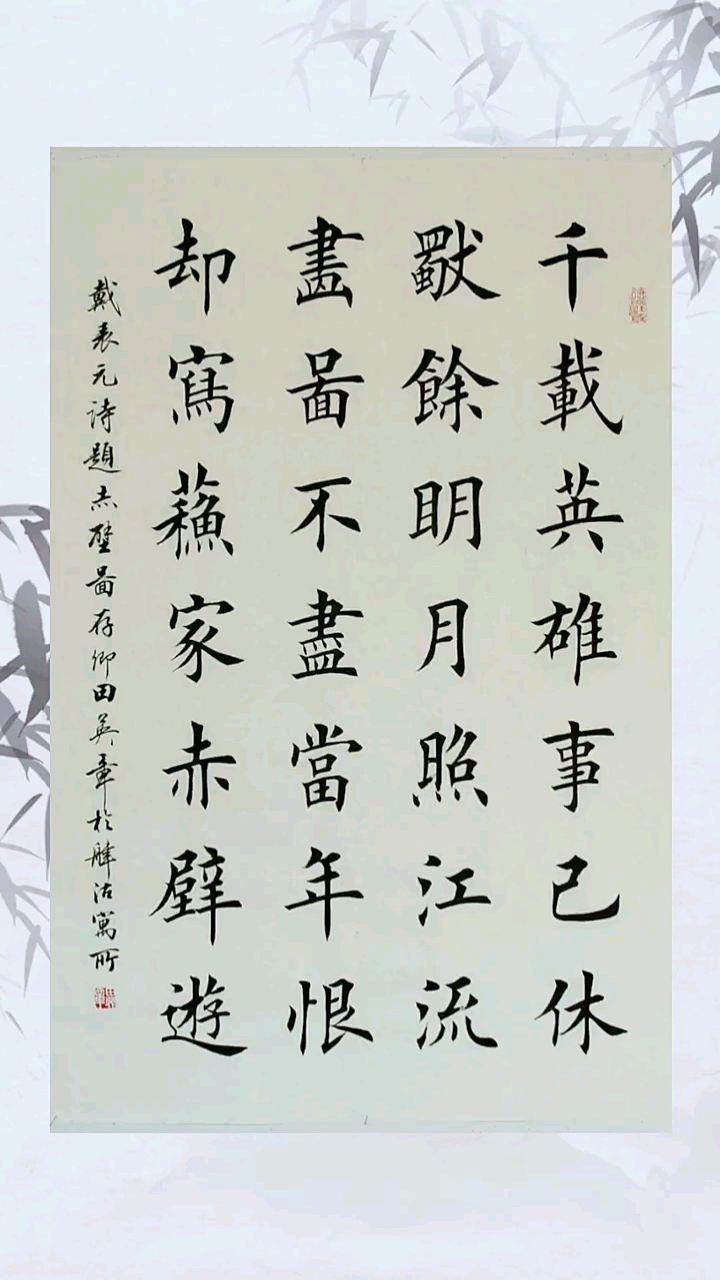 千載英雄事已休
獨餘明月照江流
畫啚不盡當年恨
却寫蘓家赤壁遊
戴表元詩題赤壁啚存卿田英章於津沽寓所